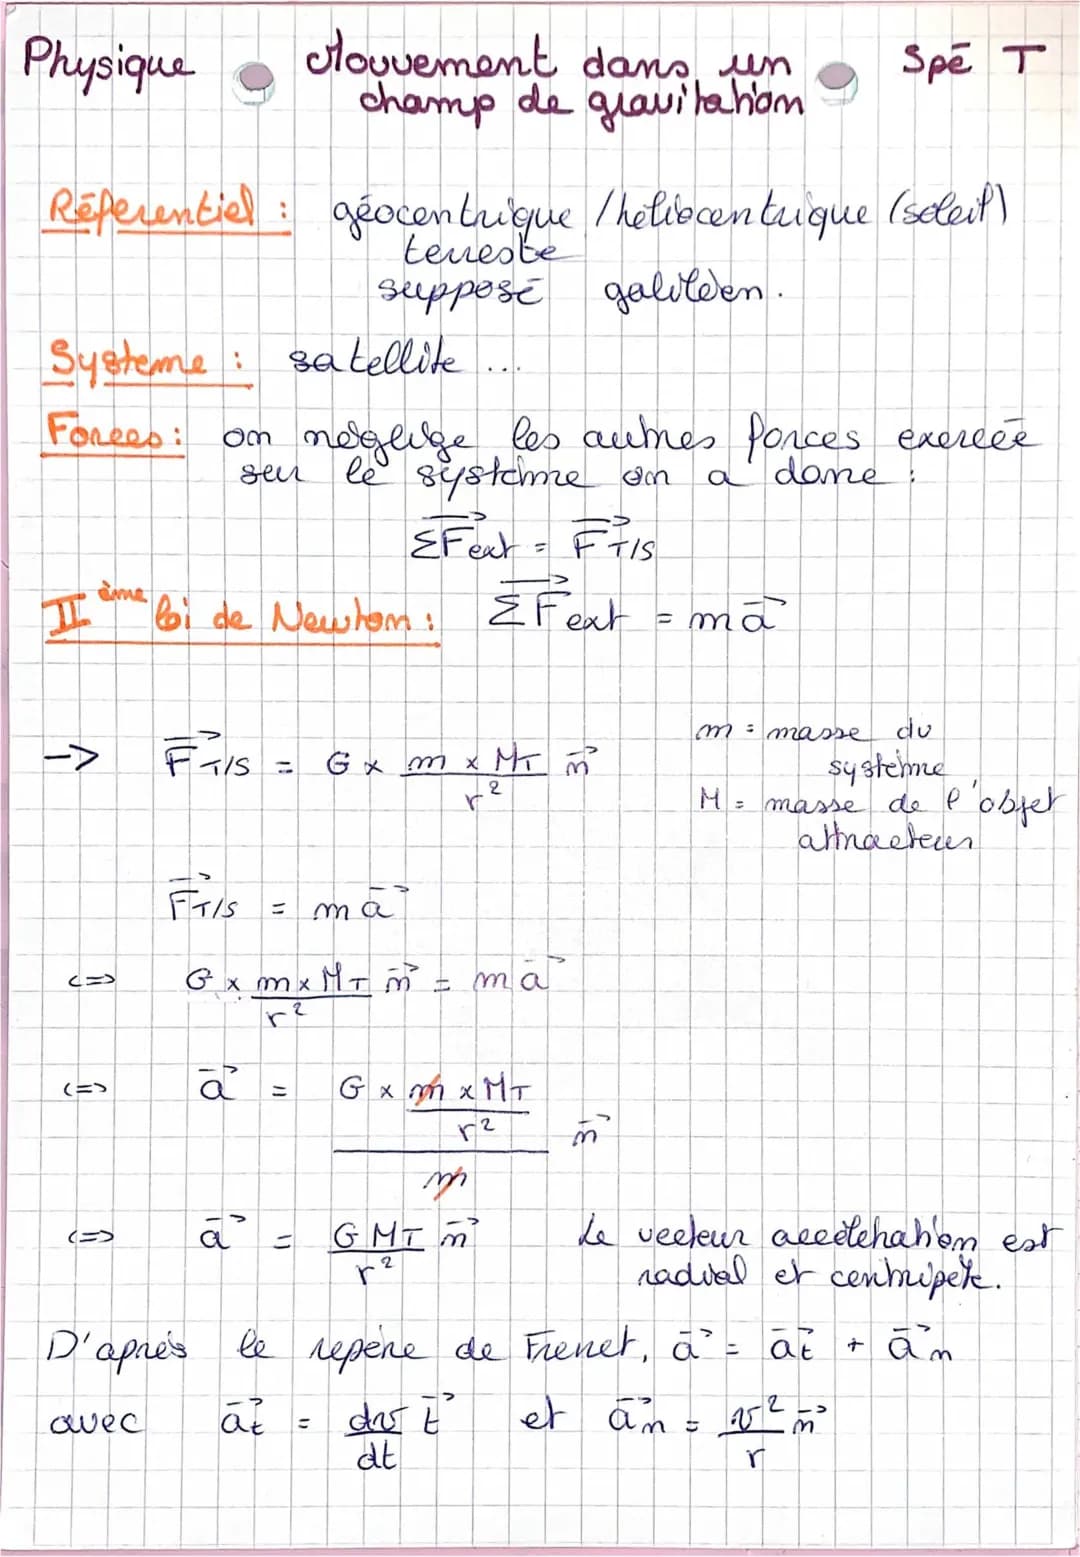 Physique Mouvement dans un Spé T
champ de gravitation
Réferentiel : géocentrique / héliocentrique (soleil)
terreste
supposé galiléen.
Systeme : satellite ...
Forces : on néglige les autres forces exercée
sur le système on a donc :
ΣF⃗ext = F⃗T/S
IIème loi de Newton : ΣF⃗ext = ma⃗
-> F⃗T/S = G × (m × MT)/r² n⃗
m = masse du
système
M = masse de l'objet
attracteur
F⃗T/S = ma⃗
<=> G × (m × MT)/r² n⃗ = ma⃗
<=> a⃗ = (G × (m × MT)/r²)/m n⃗
<=> a⃗ = (GMT)/r² n⃗ Le vecteur accélération est
radial et centripète.
D'après le repère de Frenet, a⃗ = a⃗t + a⃗n
avec a⃗t = dv/dt t⃗ et a⃗n = v²/r n⃗